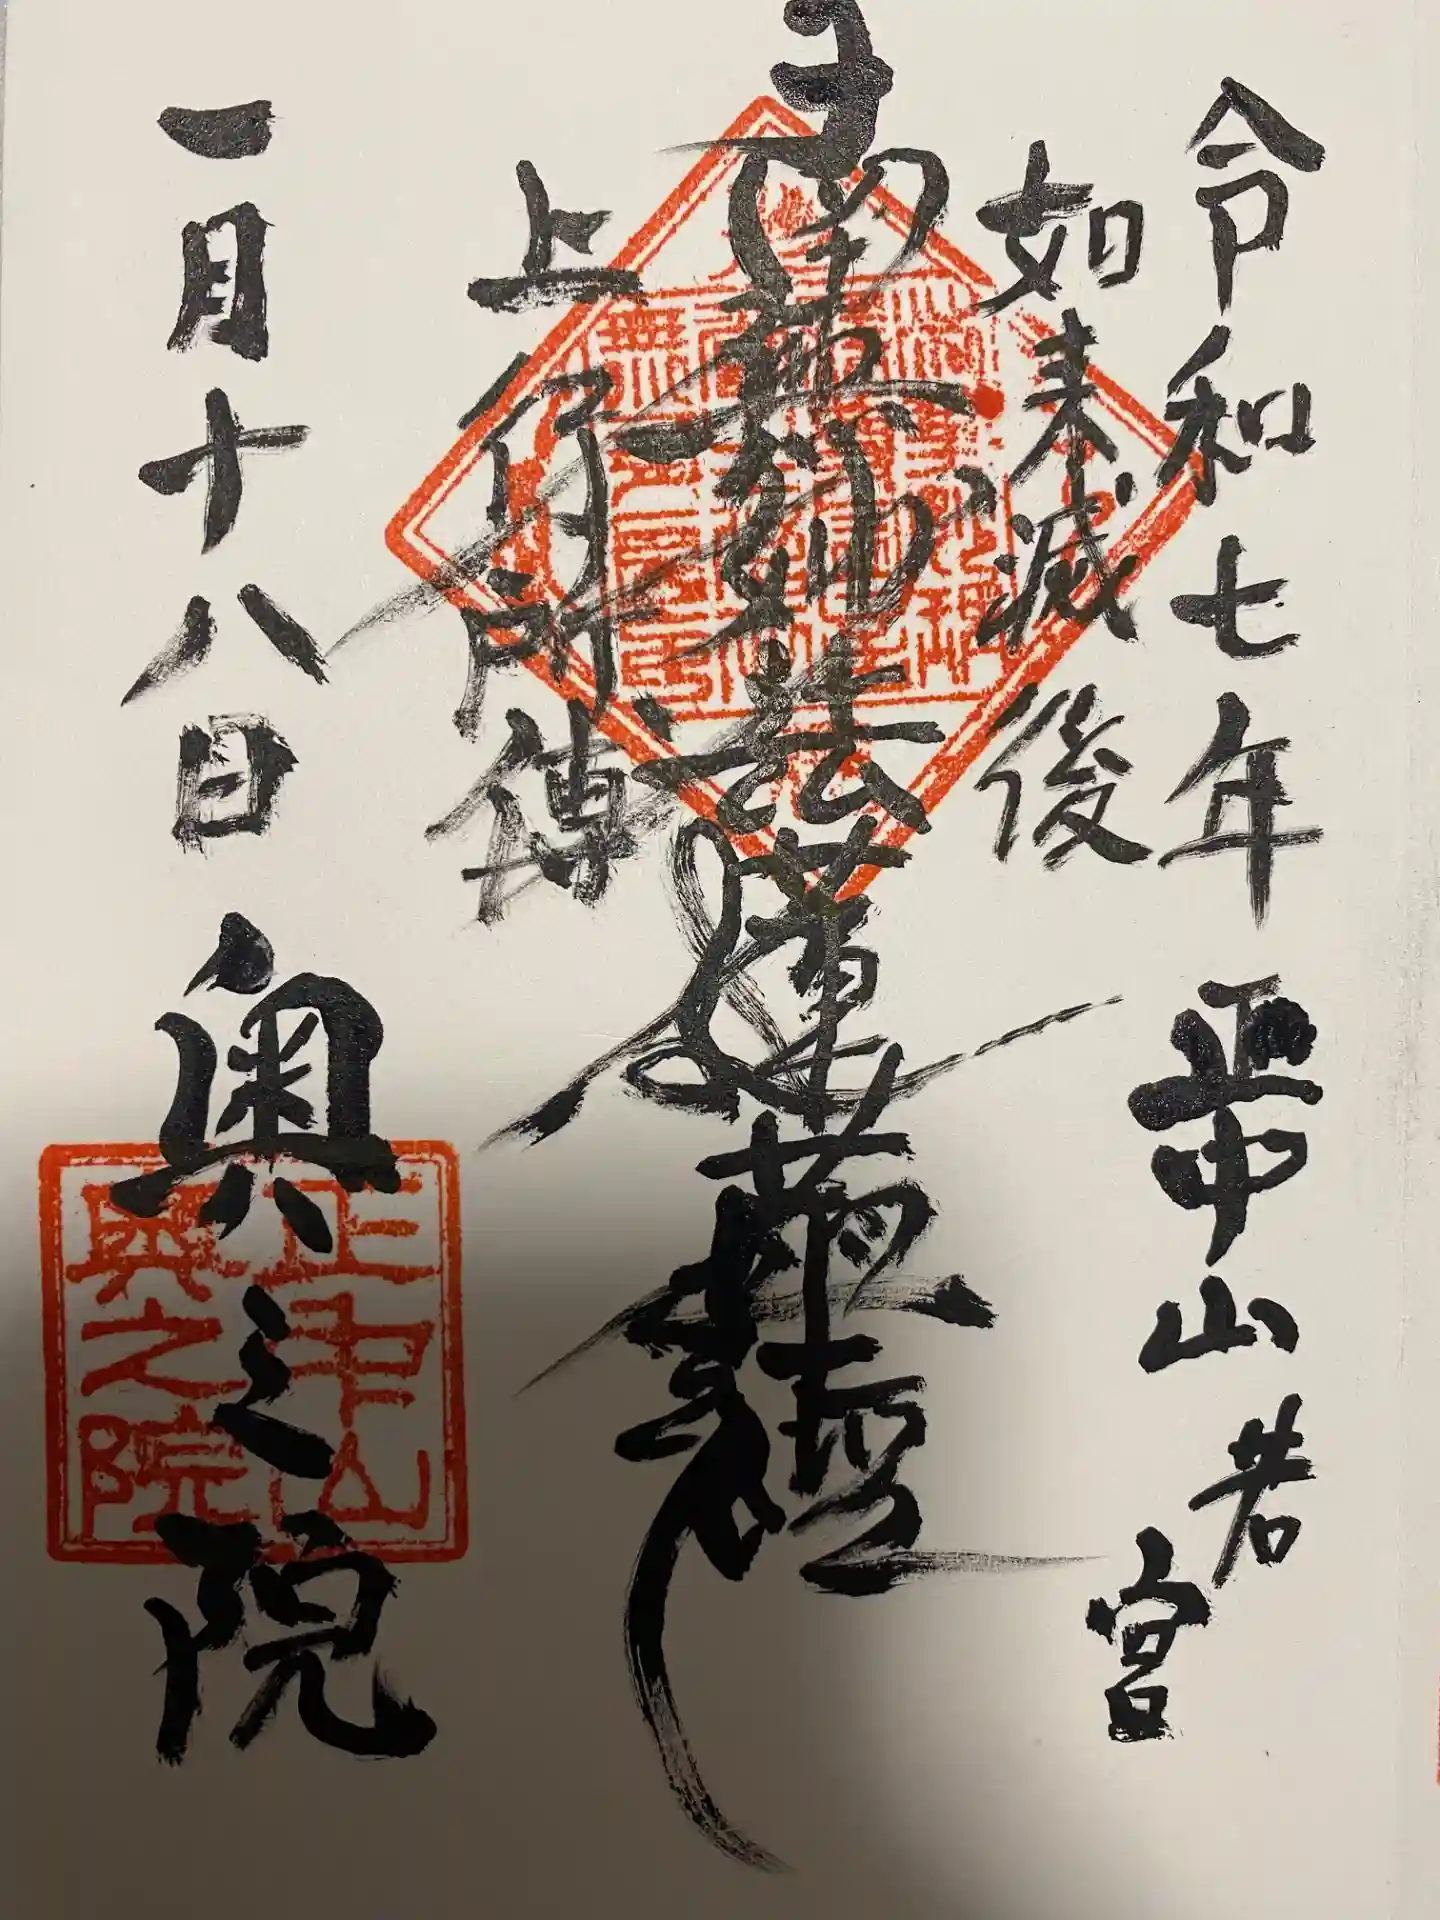 令和七年 正中山 若宮
如来滅後
南無妙法蓮華經
上行所傳
一月十八日 奥之院
正中山
奥之院